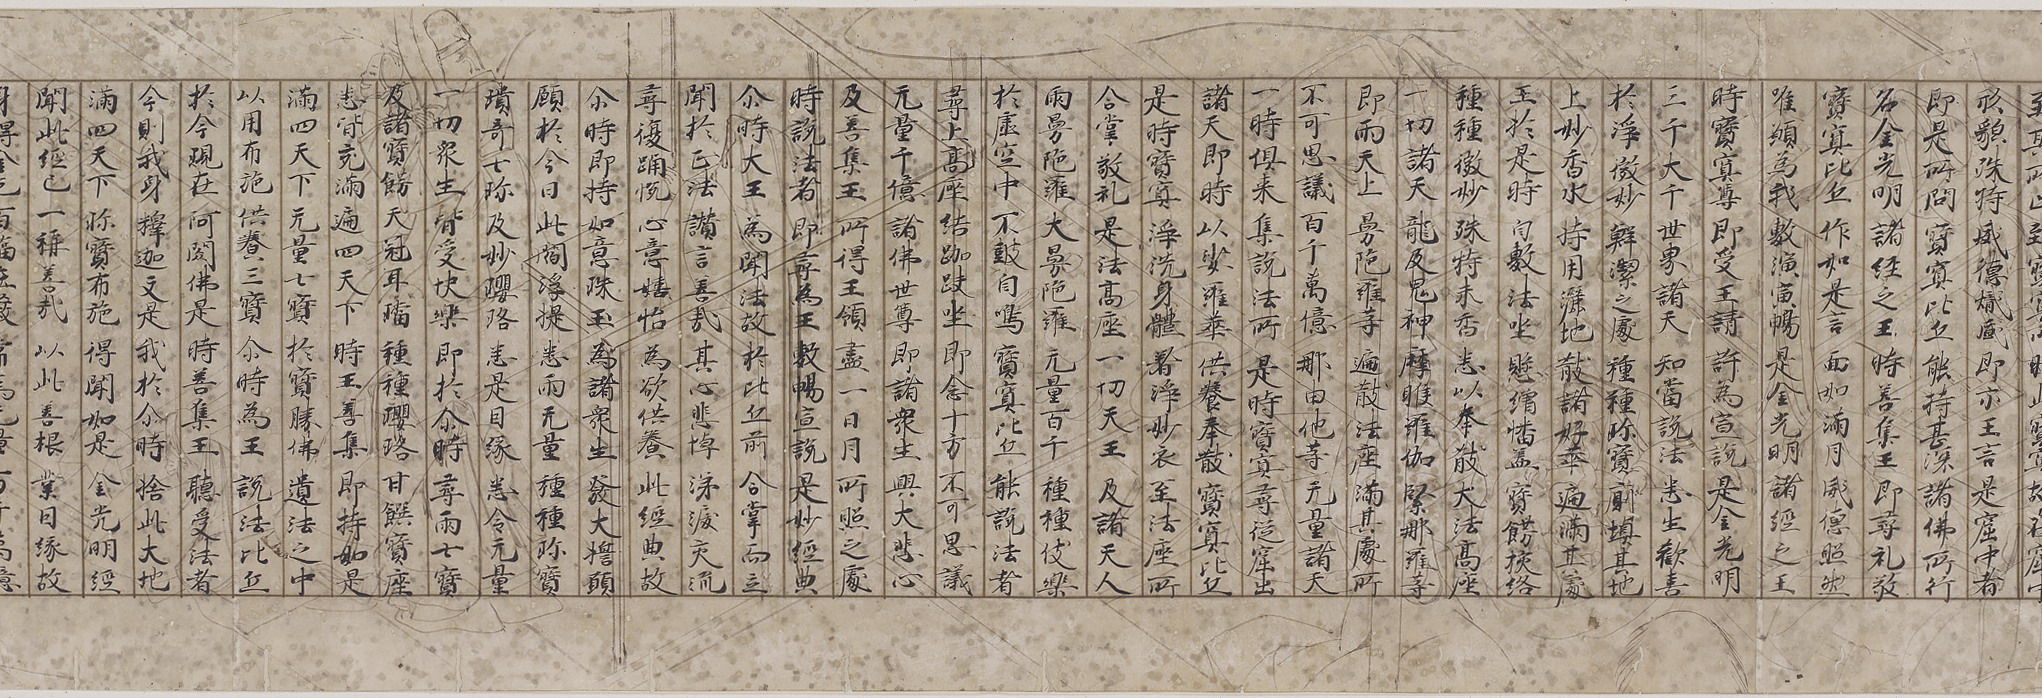 形貌殊特 威德熾盛 即示王言 是窟中者
即是所問 寶冥比丘 能持甚深 諸佛所行
名金光明 諸經之王 時善集王 即尋礼敬
寶冥比丘 作如是言 面如滿月 威德照然
唯願為我 敷演宣暢 是金光明 諸經之王
時寶冥尊 即受王請 許為宣說 是金光明
三千大千 世界諸天 知當說法 悉生歡喜
於淨微妙 鮮潔之處 種種珎寶 廁填其地
上妙香水 持用灑地 散諸好華 遍滿其處
王於是時 自敷法坐 懸繒幡盖 寶餝挍絡
種種微妙 殊特末香 悉以奉散 大法高座
一切諸天 龍及鬼神 摩睺羅伽 緊那羅等
即雨天上 曼陁羅等 遍散法座 滿其處所
不可思議 百千萬億 那由他等 无量諸天
一時俱来 集說法所 是時寶冥 尋從窟出
諸天即時 以娑羅華 供養奉散 寶冥比丘
是時寶冥 淨洗身體 著淨妙衣 至法座所
合掌敬礼 是法高座 一切天王 及諸天人
雨曼陁羅 大曼陁羅 无量百千 種種伎樂
於虛空中 不鼓自鳴 寶冥比丘 能說法者
尋上高座 結跏趺坐 即念十方 不可思議
无量千億 諸佛世尊 即諸衆生 興大悲心
及善集王 所得王領 盡一日月 所照之處
時說法者 即尋為王 敷暢宣說 是妙經典
尒時大王 為聞法故 於比丘前 合掌而立
聞於正法 讚言善哉 其心悲悼 涕淚交流
尋復踊悅 心意嬉怡 為欲供養 此經典故
尒時即持 如意珠王 為諸衆生 發大擔願
願於今日 此閻浮提 悉雨无量 種種珎寶
瓌奇七珎 及妙瓔珞 悉是目緣 悉令无量
一切衆生 皆受快樂 即於尒時 尋雨七寶
及諸寶餝 天冠耳璫 種種瓔珞 甘饌寶座
悉皆充滿 遍四天下 時王善集 即持如是
滿四天下 无量七寶 於寶勝佛 遺法之中
以用布施 供養三寶 尒時為王 說法比丘
於今現在 阿閦佛是 時善集王 聽受法者
今則我身 釋迦文是 我於尒時 捨此大地
滿四天下 珎寶布施 得聞如是 金光明經
聞此經已 一稱善哉 以此善根 業因緣故